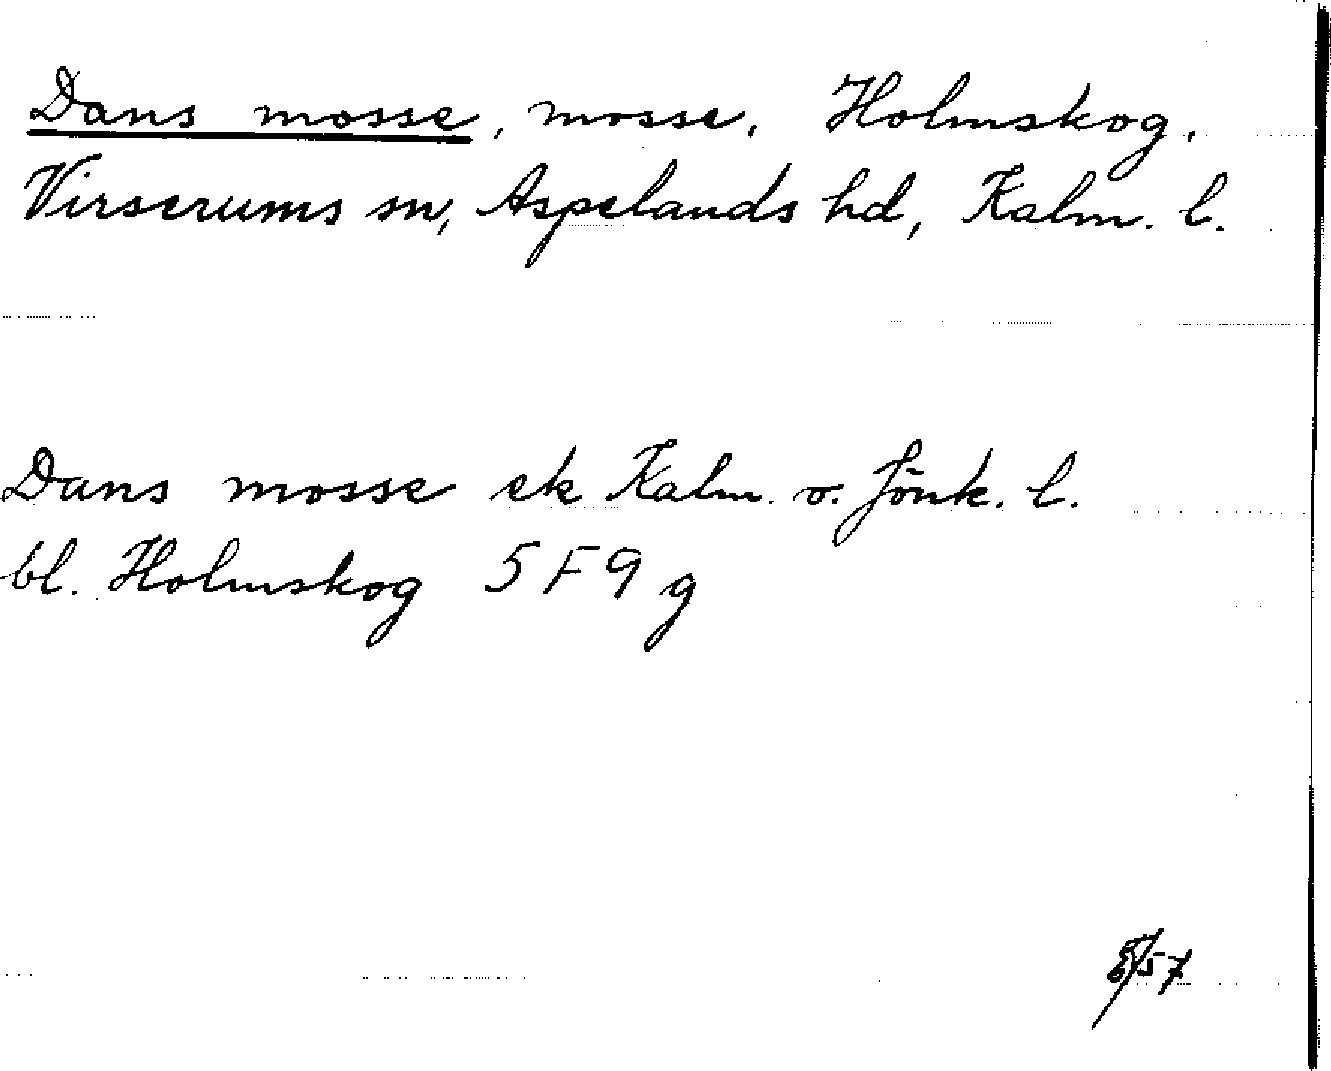 Dans mosse, mosse, Holmskog,
Virserums sn, Aspelands hd, Kalm. l.
Dans mosse ek Kalm. o. Jönk. l.
bl. Holmskog 5 F 9 g